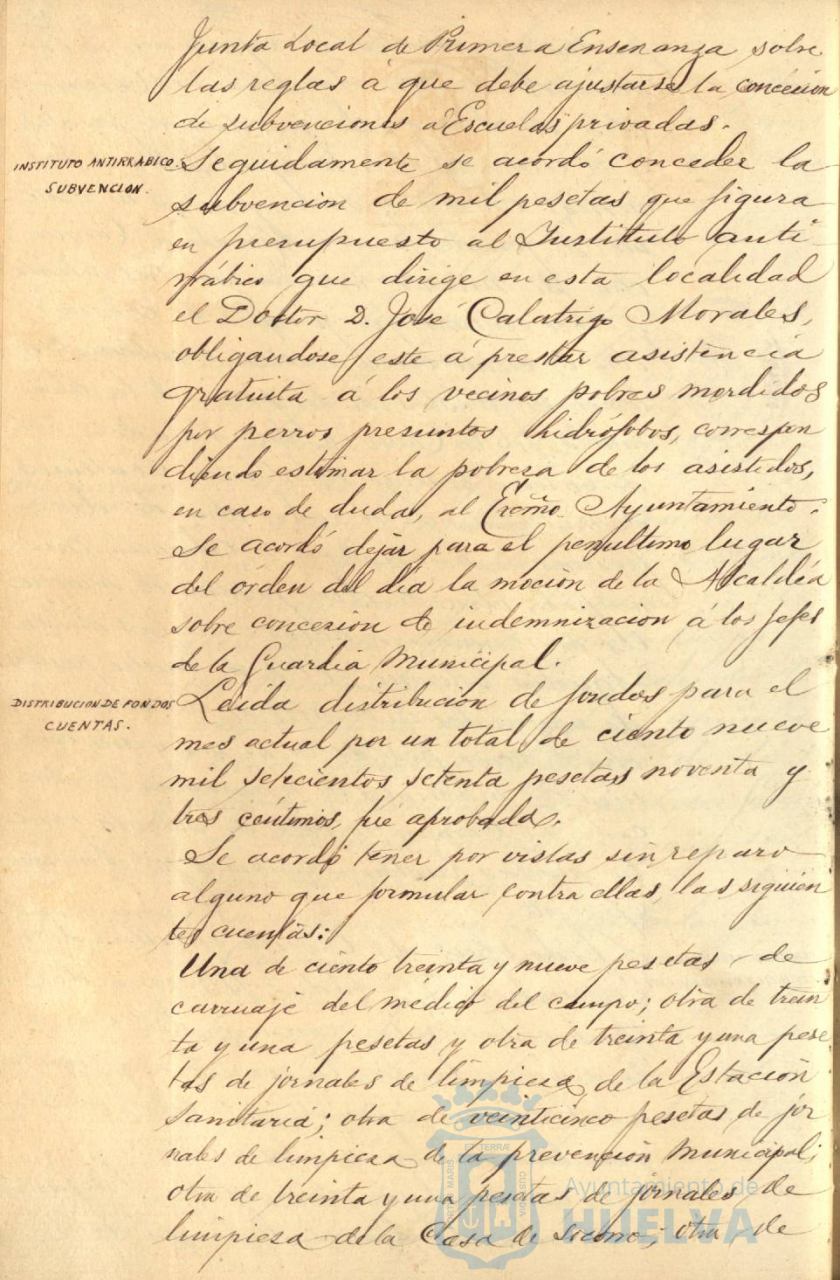 Junta Local de Primera Enseñanza sobre
las reglas á que debe ajustarse la concesion
de subvenciones á Escuelas privadas.
INSTITUTO ANTIRRABICO.
SUBVENCION.
Seguidamente se acordó conceder la
subvencion de mil pesetas que figura
en presupuesto al Instituto anti-
rrábico que dirige en esta localidad
el Doctor D. José Calatrigo Morales,
obligandose este á prestar asistencia
gratuita á los vecinos pobres mordidos
por perros presuntos hidrófobos, correspon
diendo estimar la pobreza de los asistidos,
en caso de duda, al Excmo Ayuntamiento.
Se acordó dejar para el penultimo lugar
del órden del dia la moción de la Alcaldía
sobre concesion de indemnizacion á los Jefes
de la Guardia Municipal.
DISTRIBUCION DE FONDOS
CUENTAS.
Leida distribucion de fondos para el
mes actual por un total de ciento nueve
mil setecientos setenta pesetas noventa y
tres céntimos, fué aprobada.
Se acordó tener por vistas sin reparo
alguno que formular contra ellas, las siguien
tes cuentas:
Una de ciento treinta y nueve pesetas de
carruaje del médico del campo; otra de trein
ta y una pesetas y otra de treinta y una pese
tas de jornales de limpieza de la Estación
Sanitaria; otra de veinticinco pesetas de jor
nales de limpieza de la prevención Municipal;
otra de treinta y una pesetas de jornales de
limpieza de la Casa de Socorro; otra de
Ayuntamiento de
HUELVA